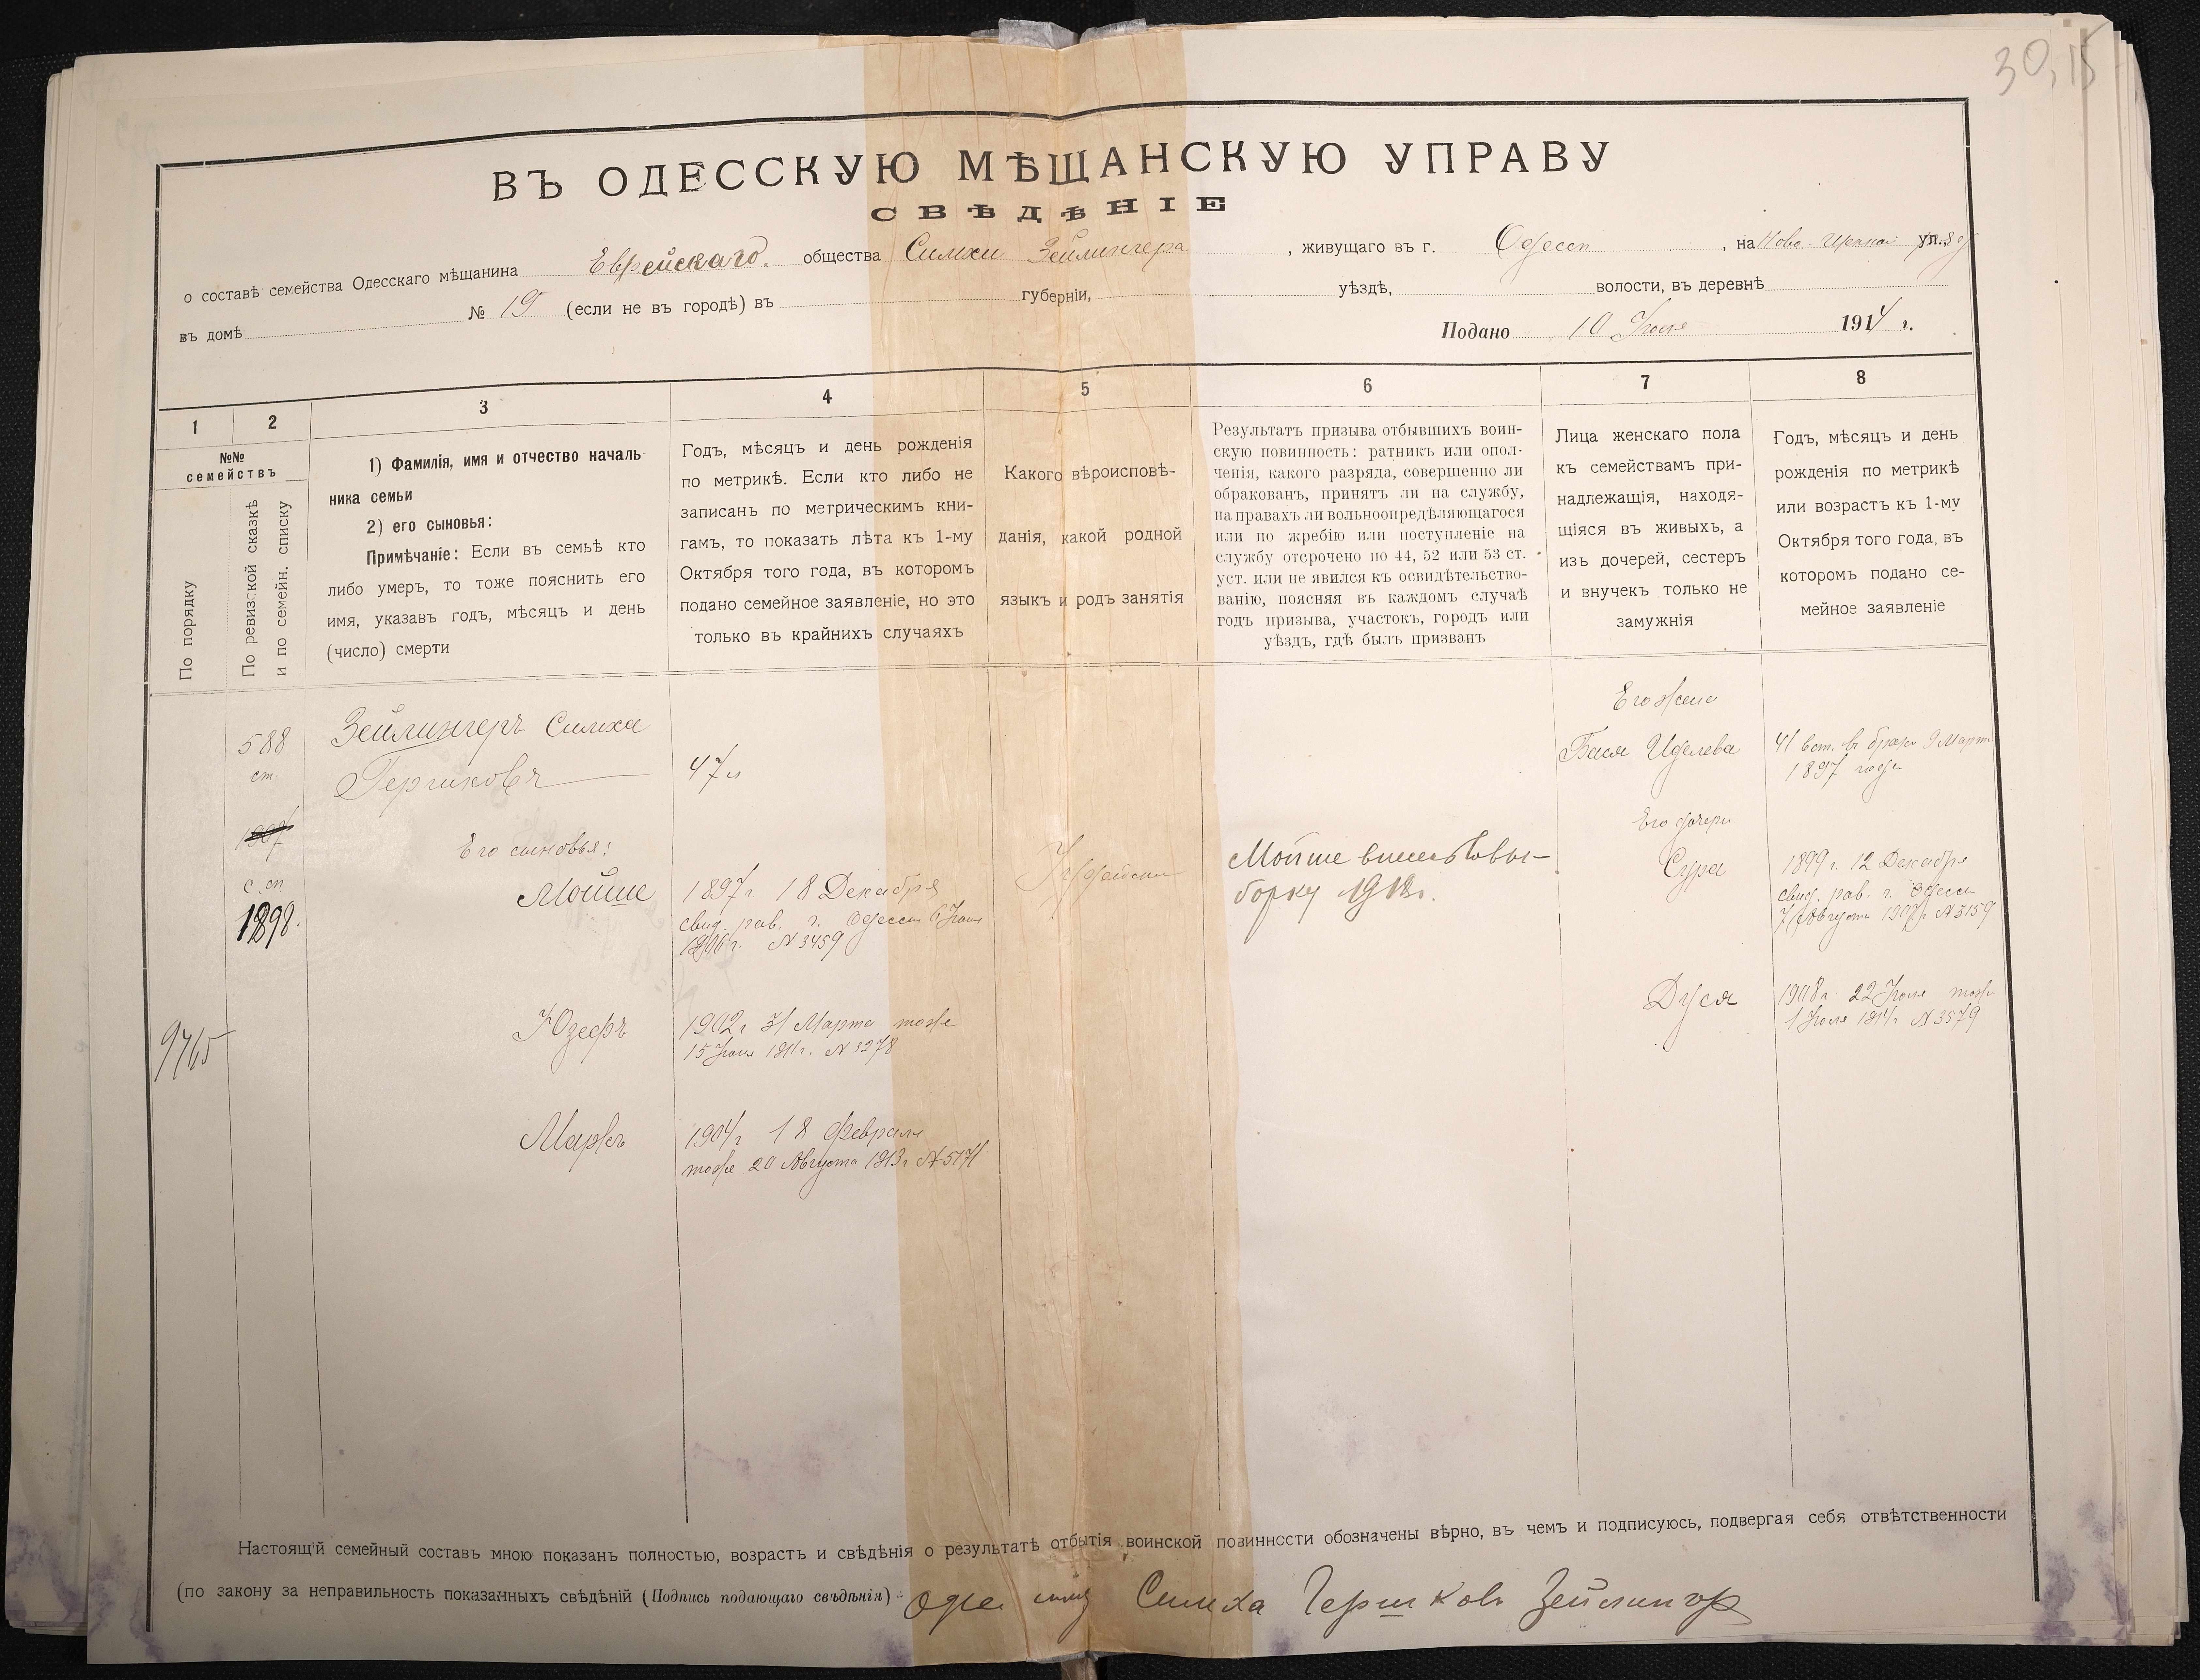 30,15
ВЪ ОДЕССКУЮ МѢЩАНСКУЮ УПРАВУ
СВѢДѢНІЕ
о составѣ семейства Одесскаго мѣщанина Еврейскаго общества Симхи Зейлингера, живущаго въ г. Одессѣ, на Ново ул.,
въ домѣ № 19 (если не въ городѣ) въ губерніи, уѣздѣ, волости, въ деревнѣ
Подано 10 1914 г.
1 2 3 4 5 6 7 8
№№
семействъ
По порядку
По ревизской сказкѣ
и по семейн. списку
1) Фамилія, имя и отчество началь-
ника семьи
2) его сыновья:
Примѣчаніе: Если въ семьѣ кто
либо умеръ, то тоже пояснить его
имя, указавъ годъ, мѣсяцъ и день
(число) смерти
Годъ, мѣсяцъ и день рожденія
по метрикѣ. Если кто либо не
записанъ по метрическимъ кни-
гамъ, то показать лѣта къ 1-му
Октября того года, въ которомъ
подано семейное заявленіе, но это
только въ крайнихъ случаяхъ
Какого вѣроисповѣ-
данія, какой родной
языкъ и родъ занятія
Результатъ призыва отбывшихъ воин-
скую повинность: ратникъ или опол-
ченія, какого разряда, совершенно ли
обракованъ, принятъ ли на службу,
на правахъ ли вольноопредѣляющагося
или по жребію или поступленіе на
службу отсрочено по 44, 52 или 53 ст.
уст. или не явился къ освидѣтельство-
ванію, поясняя въ каждомъ случаѣ
годъ призыва, участокъ, городъ или
уѣздъ, гдѣ былъ призванъ
Лица женскаго пола
къ семействамъ при-
надлежащія, находя-
щіяся въ живыхъ, а
изъ дочерей, сестеръ
и внучекъ только не
замужнія
Годъ, мѣсяцъ и день
рожденія по метрикѣ
или возрастъ къ 1-му
Октября того года, въ
которомъ подано се-
мейное заявленіе
588
ст.
1907
с. сп
1898.
9765
Зейлингеръ Симха
Гершковъ
47 л
Его сыновья:
Мойше
1897 г. 18 Декабря
свид. рав. г. Одессы 6
1906 г. № 3459
Іудейскаго
Мойше внесенъ въ вы-
борку
Юзефъ
1902 г 31 Марта тоже
15 1911 г. № 3278
Маркъ
1904 г 18 Февраля
тоже 20 Августа 1913 г № 5171
Его жена
Бася Иделева
41 вст. въ бракъ 9 Марта
1897 года
Его дочери
Сура
1899 г. 12 Декабря
свид. рав. г. Одессы
7 Августа 1907 г № 5159
Дуся
1908 г. 22 тоже
1 1914 г № 3579
Настоящій семейный составъ мною показанъ полностью, возрастъ и свѣдѣнія о результатѣ отбытія воинской повинности обозначены вѣрно, въ чемъ и подписуюсь, подвергая себя отвѣтственности
(по закону за неправильность показанныхъ свѣдѣній (Подпись подающаго свѣдѣнія) Симха Гершковъ Зейлингер